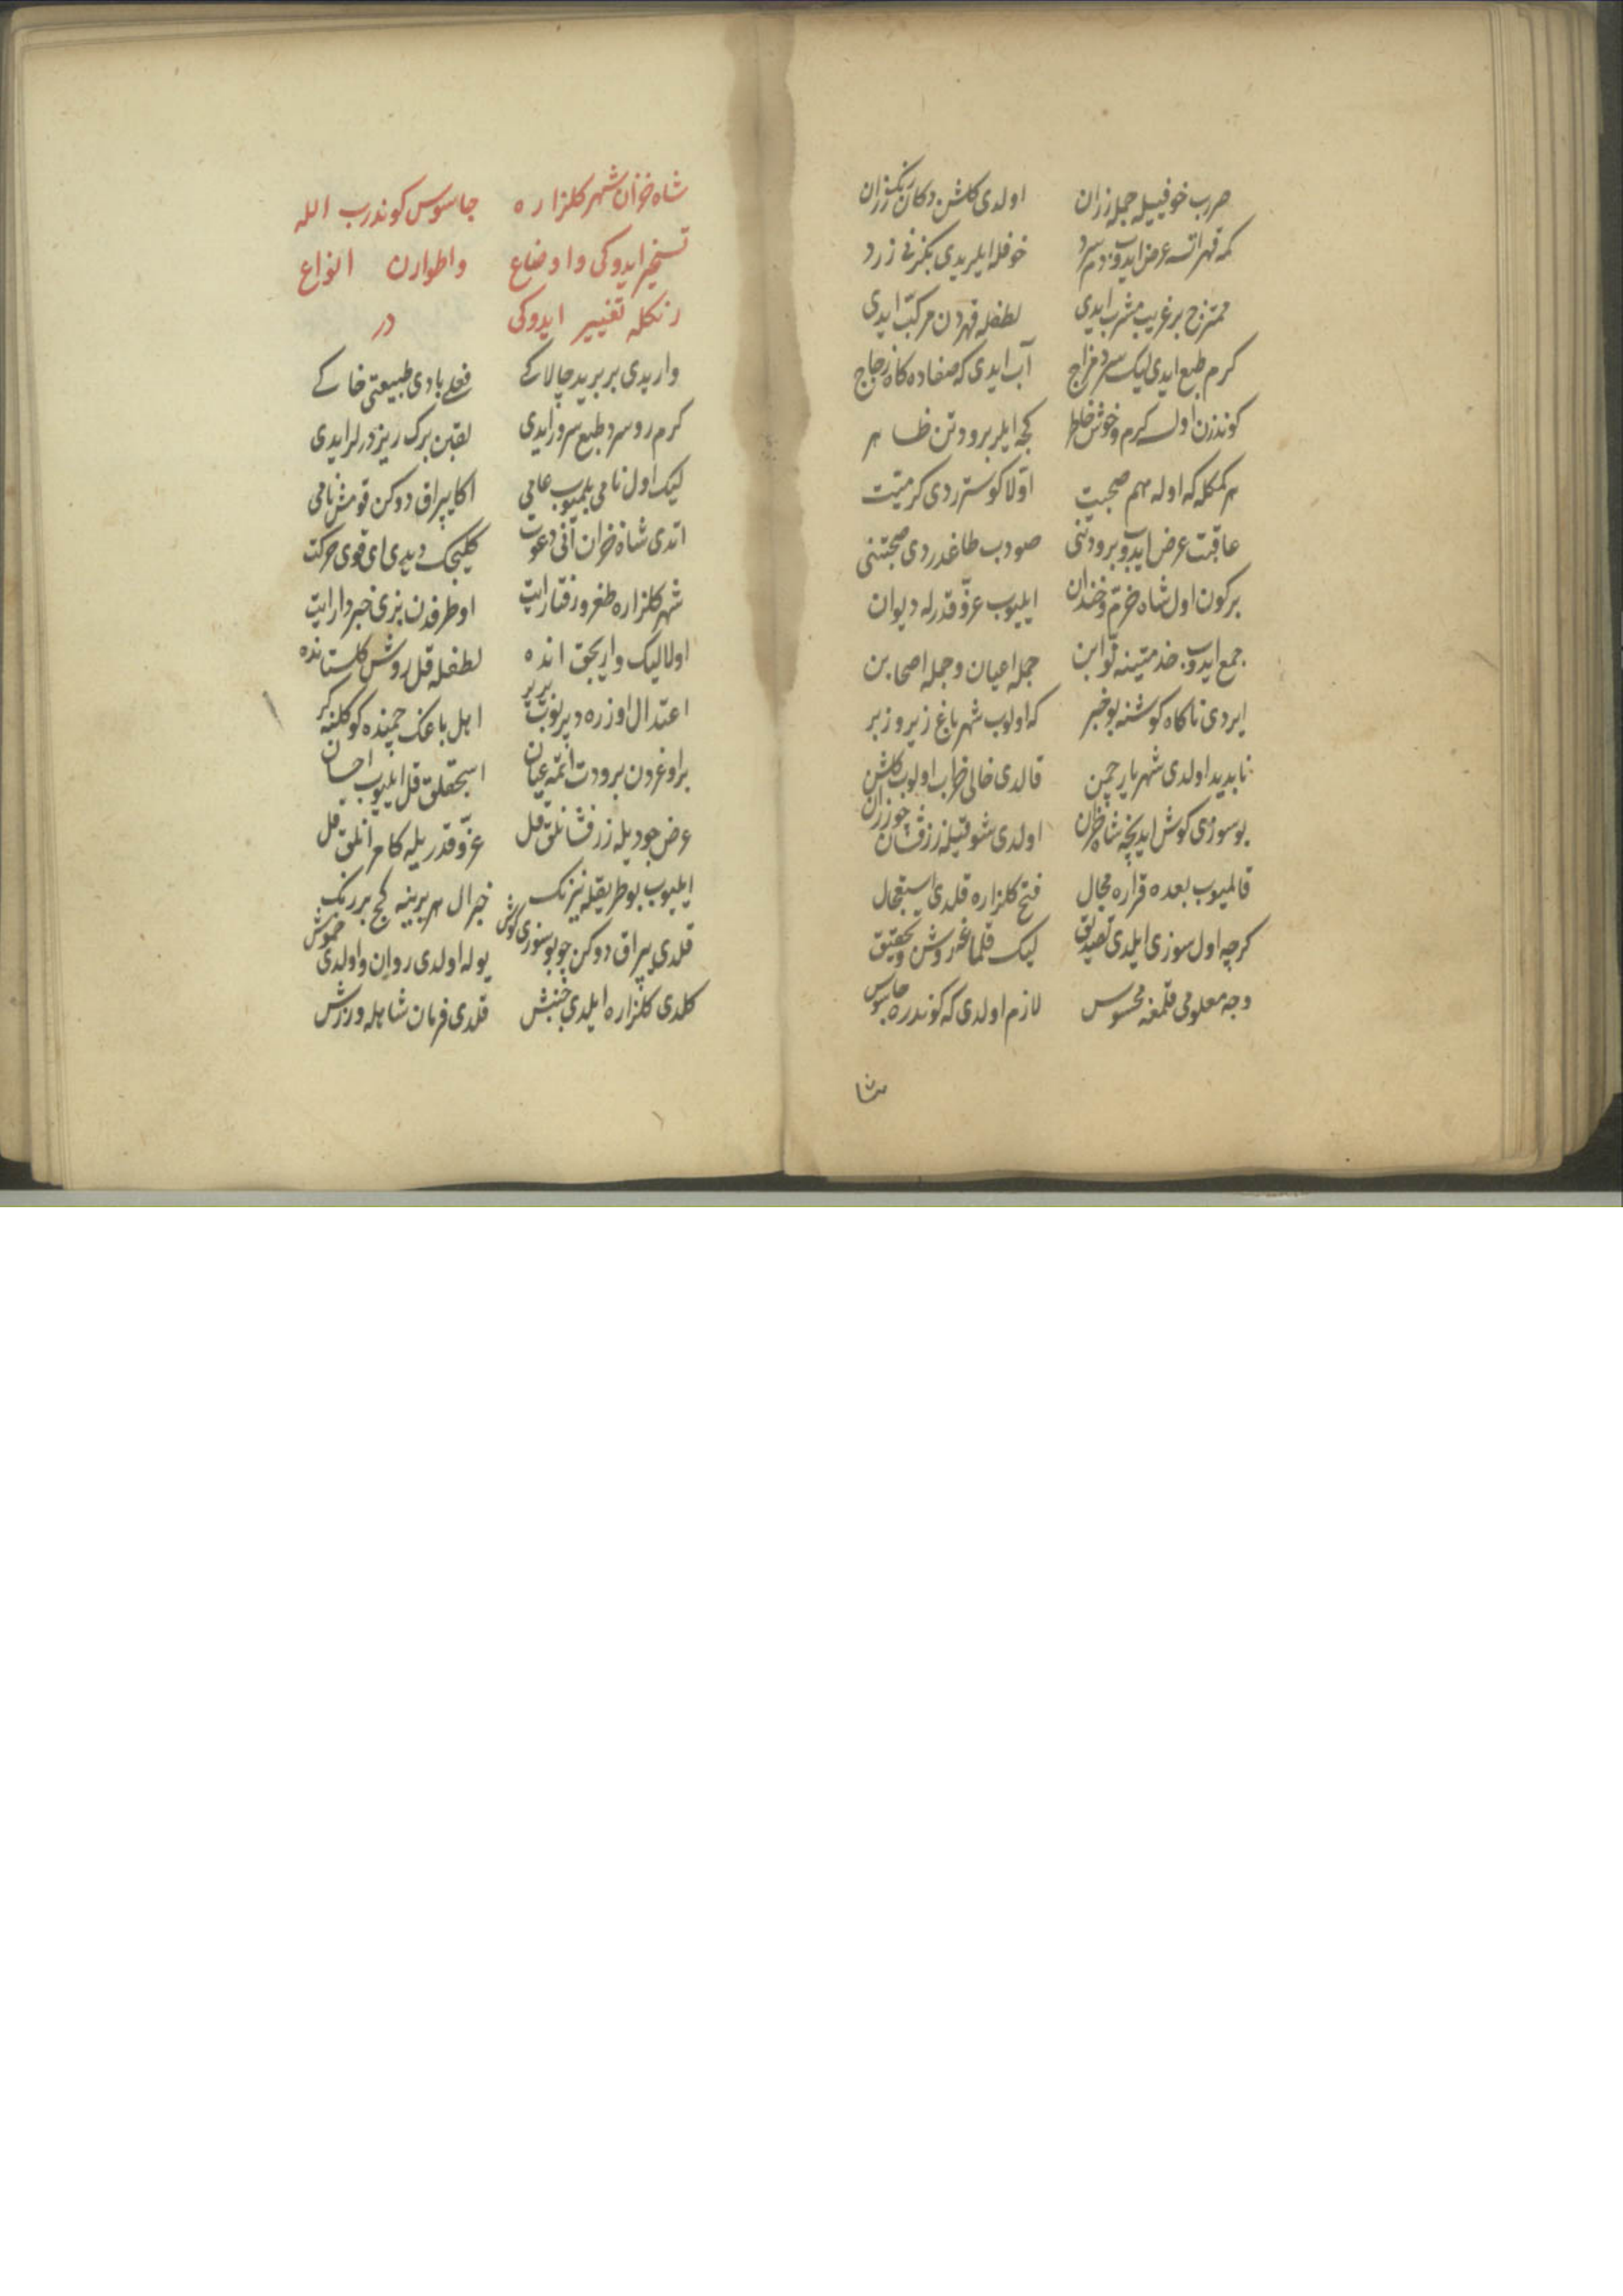 ضرب خوفیله جمله زران اولدی گلشن دکان رنگرزان
کمه قهر اتسه عرض ایدوب دم سرد خوفله ایلریدی بکزنی زرد
ممتزج بر غریب مشرب ایدی لطفله قهردن مرکب ایدی
کرم طبع ایدی لیک سرد مزاج آب ایدی که صفاده کاه زجاج
کوندزن اولسه کرم و خوش خاطر کیجه ایلر برودتن ظاهر
هر کمکله که اوله هم صحبت اولا کوستردی کرمیت
عاقبت عرض ایدوب برودتنی صودب طاغدردی صحبتنی
برکون اول شاه خرم و خندان ایلیوب عز و قدرله دیوان
جمع ایدوب خدمتینه نوابن جمله اعیان و جمله اصحابن
ایردی ناکاه کوشنه بو خبر که اولوب شهر باغ زیر و زبر
نابدید اولدی شهریار چمن قالدی خالی خراب اولوب گلشن
بو سوزی کوش ایدیجه شاه خزان اولدی شوقیله زرفشان چو رزان
قالمیوب بعده قراره مجال فتح کلزاره قلدی استعجال
کرچه اول سوزی ایلدی تصدیق لیک قلماغه روش و تحقیق
وجه معلومی قلمغه محسوس لازم اولدی که کوندره جاسوس
شا
شاه خزان شهر کلزاره جاسوس کوندرب الله
تسخیر ایدوکی و اوضاع و اطوارن انواع
رنکله تغییر ایدوکی در
واریدی بر برید چالاکی فعلی بادی طبیعتی خاکی
کرم رو سرد طبع سرور ایدی لقبن برک ریز درلر ایدی
لیک اول نامی بلمیوب عامی اکا یپراق دوکن قومش نامی
اتدی شاه خزان آنی دعوت کلیجک دیدی ای قوی حرکت
شهر کلزاره طغرو رفتار ایت اوطرفدن بزی خبردار ایت
اولا لیک واریجق انده لطفله قل روش کلستانده
اعتدال اوزره دپرنوب بر بر اهل باغک چمنده کوکلنه کر
بر اوغردن برودت اتمه عیان اسیجقلق قل ایلیوب احسان
عرض جودیله زرفشانلق قل عز و قدریله کامرانلق قل
ایلیوب بو طریقله نیرنک خبر ال هر برینه کچ بر رنک
قلدی یپراق دوکن چو بو سوزی کوش یوله اولدی روان و اولدی خموش
کلدی کلزاره ایلدی جنبش قلدی فرمان شاهله ورزش